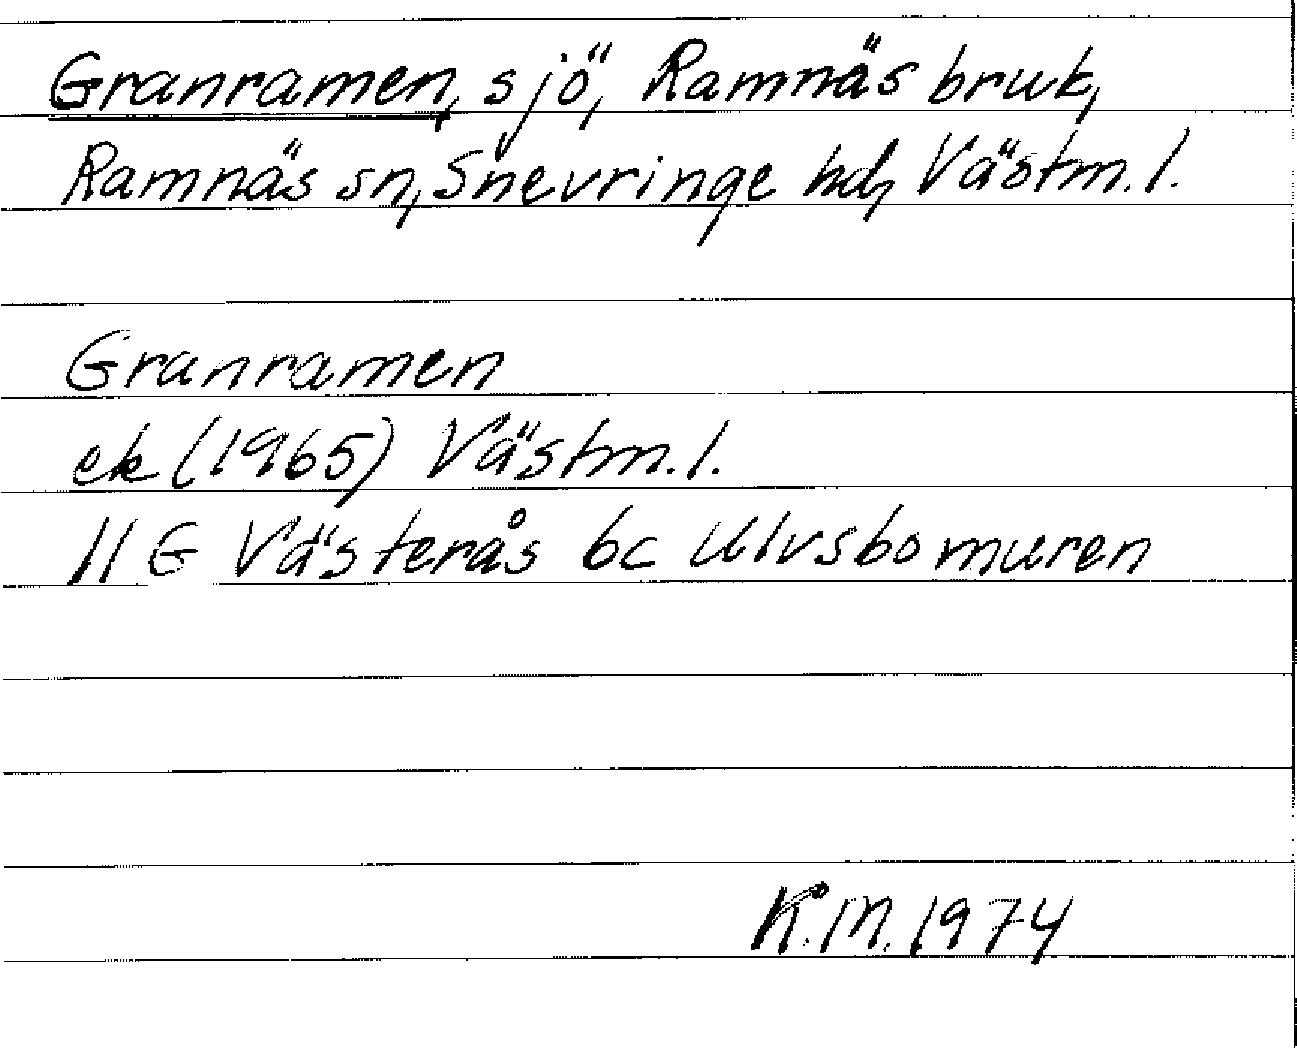 Granramen, sjö, Ramnäs bruk,
Ramnäs sn, Snevringe hd, Västm. l.
Granramen
ek (1965) Västm. l.
11 G Västerås 6c Ulvsbomuren
K.M. 1974